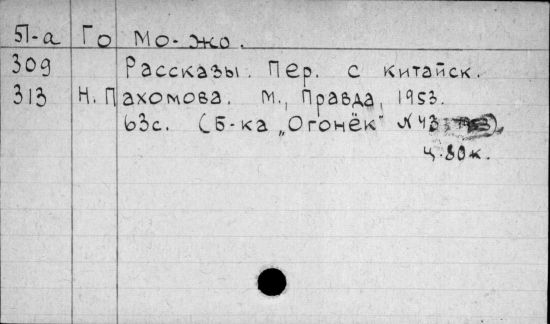 51-а Го Мо-жо.
309 Рассказы. Пер. с китайск.
313 Н. Пахомова. М., Правда, 1953.
63с. (Б-ка „Огонёк" № 43).
ц. 80к.